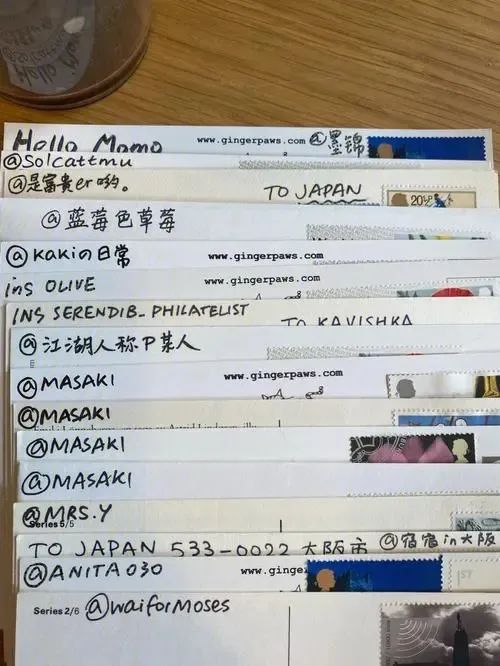 Hello Momo www.gingerpaws.com @墨锦
@Solcattmu
@是富貴er哟。 TO JAPAN 20½p
@蓝莓色草莓
@kakiの日常 www.gingerpaws.com
ins OLIVE www.gingerpaws.com
INS SERENDIB_PHILATELIST TO KAVISHKA
@江湖人称P某人
@MASAKI www.gingerpaws.com
@MASAKI
@MASAKI
@MASAKI
@MRS.Y
Series 5/5
TO JAPAN 533-0022 大阪市 @宿宿in大阪
@ANITA030 www.ginger 1ST
Series 2/6 @waiformoses